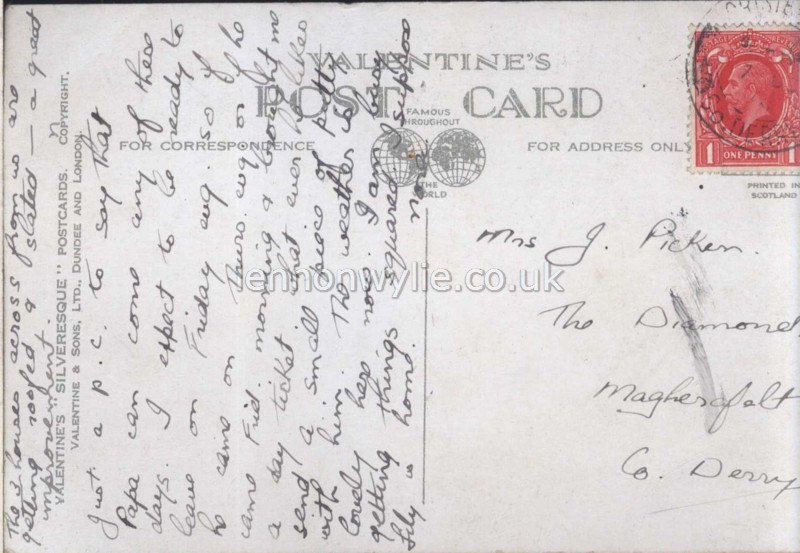 VALENTINE'S
POST CARD
FAMOUS
THROUGHOUT
THE
WORLD
FOR CORRESPONDENCE
FOR ADDRESS ONLY
PRINTED IN
SCOTLAND
1 ONE PENNY 1
VALENTINE'S "SILVERESQUE" POSTCARDS. COPYRIGHT.
VALENTINE & SONS, LTD., DUNDEE AND LONDON.
lennonwylie.co.uk
Mrs J. Picken.
The Diamond
Magherafelt
Co. Derry
The 3 houses across from us are
getting roofed & slated — a great
improvement.
Just a p.c. to say that
Papa can come any of these
days. I expect to be ready to
leave on Friday aug. so if
he came on Thurs. evg or if he
came Frid. morning & brought me
a day ticket or what ever he likes
send a small piece of putty
with him. The weather is
lovely here now. I am busy
getting things squared up
Lily is home.